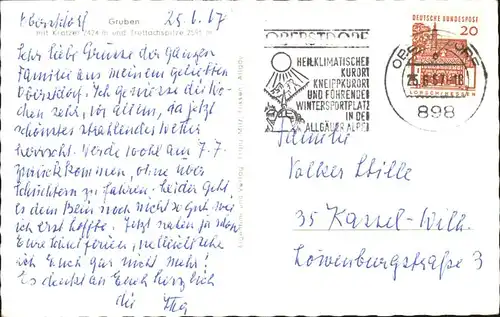 Oberstdorf Gruben 25.6.67
mit Kratzer 2424 m und Trettachspitze 2591 m
Sehr liebe Grüsse der ganzen
Familie aus meinem geliebten
Oberstdorf. Ich geniesse die Wo-
chen sehr, vor allem, da jetzt
schönstes strahlendes Wetter
herrscht. Werde wohl am 7.7.
zurück kommen, ohne über
zu fahren. Leider geht
es dem Bein noch nicht so gut wie
ich erst hoffte. Jetzt nahen ja schon
Eure ferien, sehe
ich Euch gar nicht mehr!
Es denkt an Euch herzlich
die
OBERSTDORF
HEILKLIMATISCHER
KURORT
KNEIPPKURORT
UND FÜHRENDER
WINTERSPORTPLATZ
IN DEN
ALLGÄUER ALPEN
OBERSTDORF
25.6.67-18
898
DEUTSCHE BUNDESPOST
20
LORSCH/HESSEN
Familie
Volker Stille
35 Kassel-Wilh.
Löwenburgstraße 3